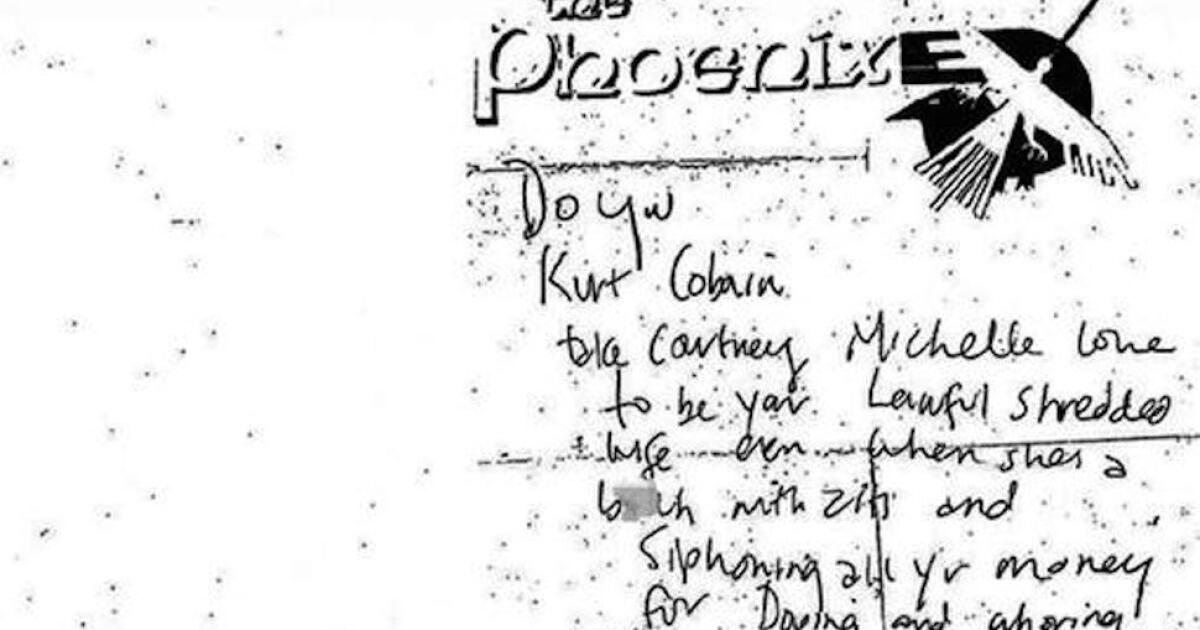 Phoenix
Do you
Kurt Cobain
take Courtney Michelle Love
to be your Lawful shredded
wife even when shes a
with zits and
Siphoning all yr money
for Doping and whoring